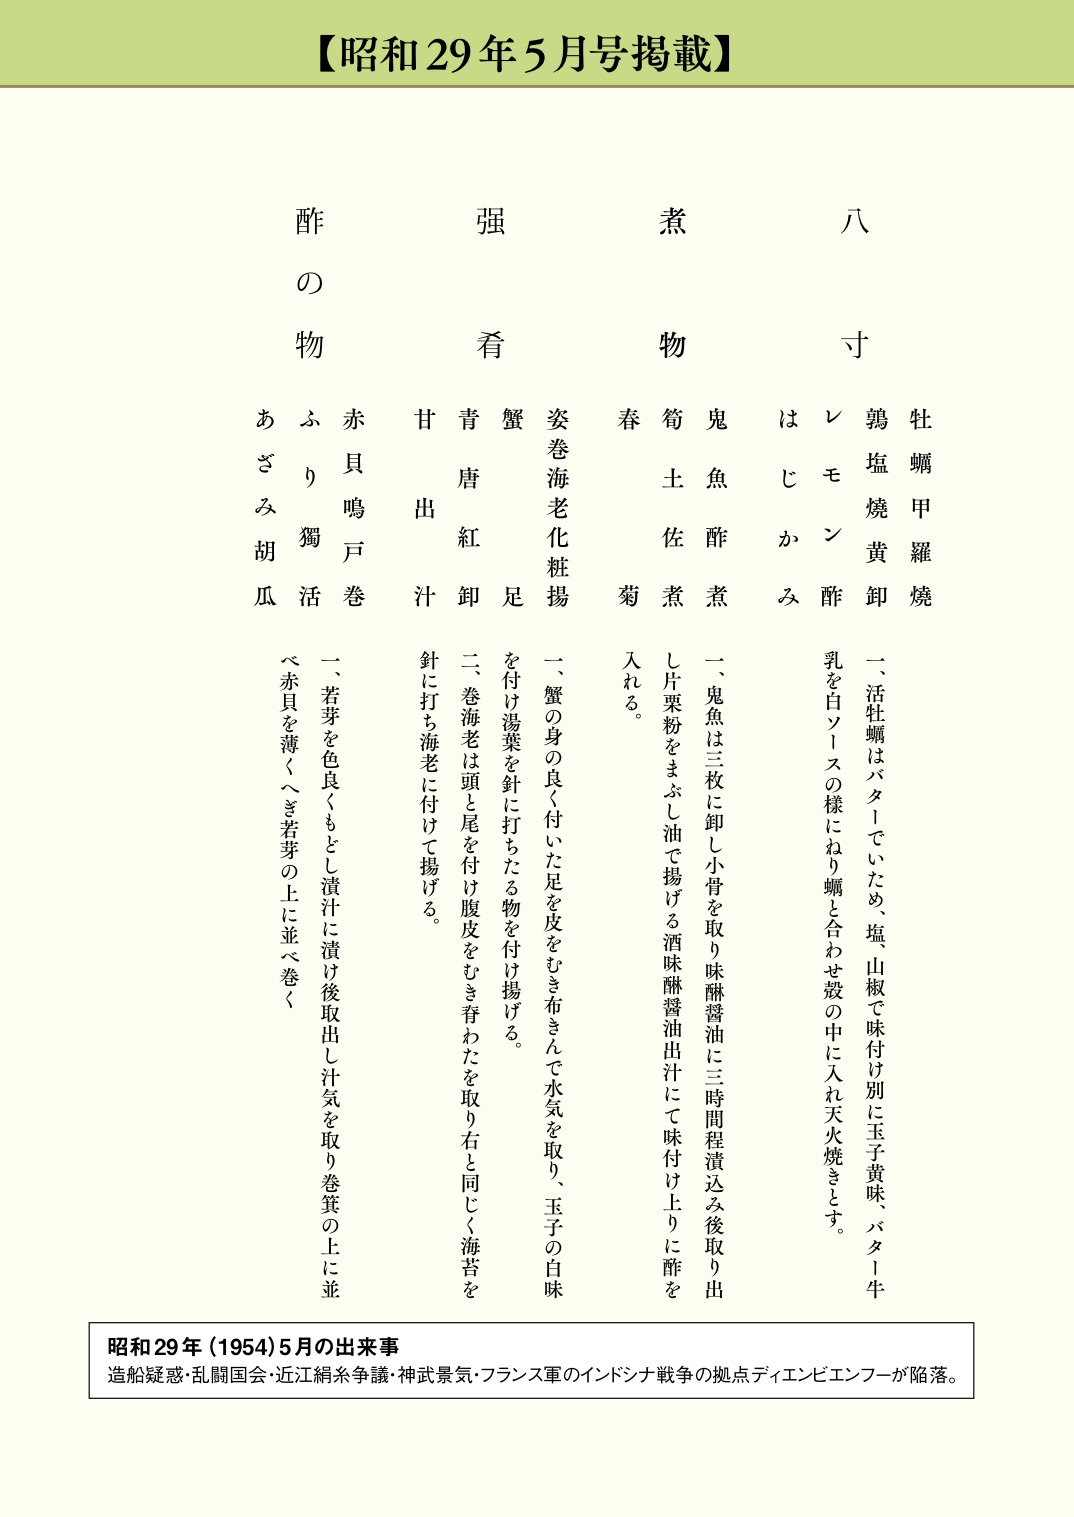 【昭和29年5月号掲載】
八寸
牡蠣甲羅燒
鶉塩燒黄卸
レモン酢
はじかみ
一、活牡蠣はバターでいため、塩、山椒で味付け別に玉子黄味、バター牛
乳を白ソースの様にねり蠣と合わせ殻の中に入れ天火焼きとす。
煮物
鬼魚酢煮
筍土佐煮
春菊
一、鬼魚は三枚に卸し小骨を取り味醂醤油に三時間程漬込み後取り出
し片栗粉をまぶし油で揚げる酒味醂醤油出汁にて味付け上りに酢を
入れる。
强肴
姿巻海老化粧揚
蟹足
青唐紅卸
甘出汁
一、蟹の身の良く付いた足を皮をむき布きんで水気を取り、玉子の白味
を付け湯葉を針に打ちたる物を付け揚げる。
二、巻海老は頭と尾を付け腹皮をむき脊わたを取り右と同じく海苔を
針に打ち海老に付けて揚げる。
酢の物
赤貝鳴戸巻
ふり獨活
あざみ胡瓜
一、若芽を色良くもどし漬汁に漬け後取出し汁気を取り巻簀の上に並
べ赤貝を薄くへぎ若芽の上に並べ巻く
昭和29年（1954）5月の出来事
造船疑惑・乱闘国会・近江絹糸争議・神武景気・フランス軍のインドシナ戦争の拠点ディエンビエンフーが陥落。